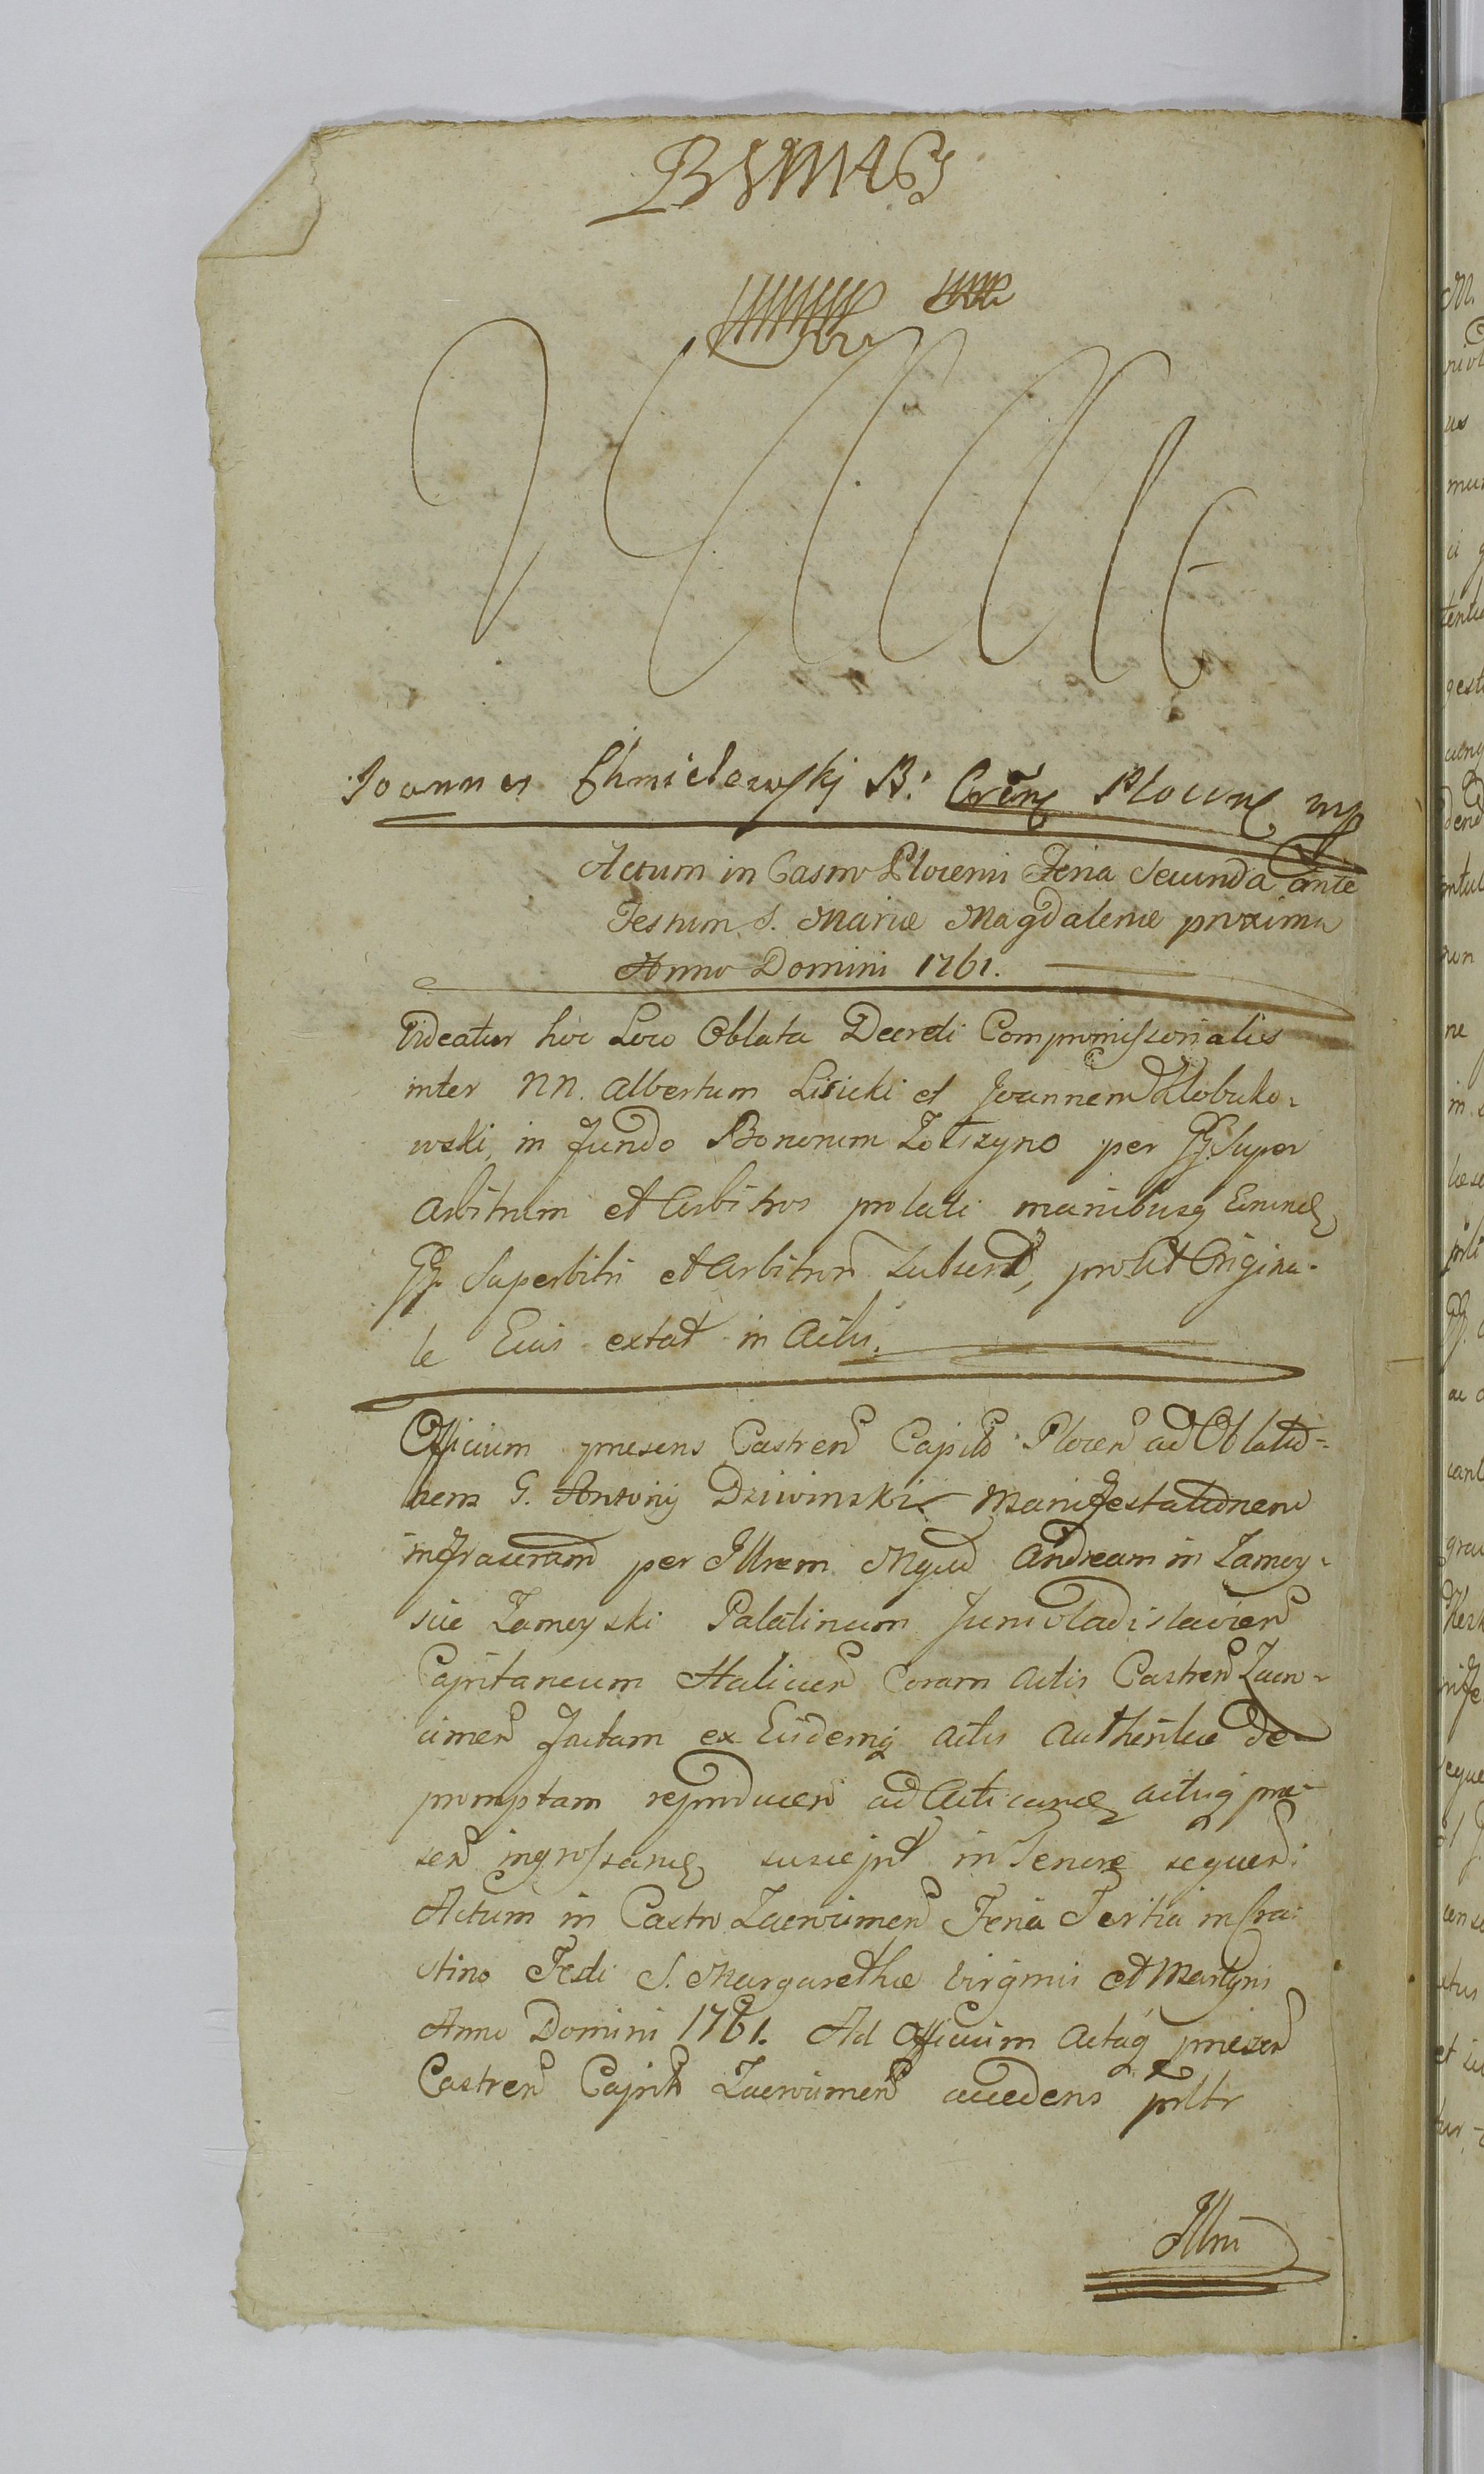 Joannes Chmielewskj B: Cren Plocen mp
Actum in Castro Plocensi Feria Secunda ante
Festum S. Mariæ Magdalenæ proxima
Anno Domini 1761.
Videatur hoc Loco Oblata Decreti Compromissorialis
inter NN. Albertum Lisicki et Joannem Kłobuko-
wski, in fundo Bonorum Żółtzyno per GG. Super
Arbitrum et Arbitros prolati manibusq Eorund
GG. Superbitri et Arbitror Subscrt, prout Origina-
le Eius extat in Actis.
Officium præsens Castren Capitle Plocen ad Oblatio-
nem G. Antonij Dziwinski Manifestationem
infrascriptam per Illrem Mgcum Andream in Zamoy-
scie Zamoyski Palatinum Junivladislavien
Capitaneum Halicien Coram Actis Castren Zacro-
cimen factam ex Eisdemq Actis Authentice de
promptam reproducen ad Acticand actisq præ-
sen ingrossand suscepit in Tenore sequen:
Actum in Castro Zacrocimen Feria Tertia in Cra-
stino Festi S. Margarethæ Virginis et Martyris
Anno Domini 1761. Ad Officium Actaq præsen
Castren Capitle Zacrocimen accedens prltr
Illris